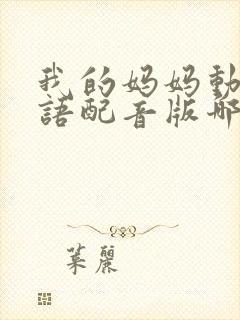 我的妈妈動
語配音版哪
葉麗